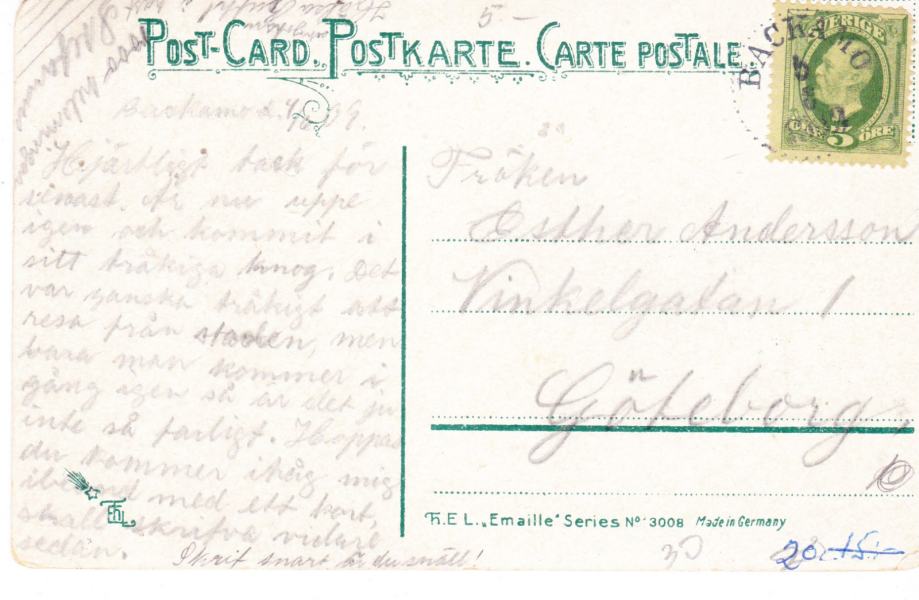 POST-CARD. POSTKARTE. CARTE POSTALE.
5.-
BACKAMO
SVERIGE
5 ÖRE
Backamo d.
Hjärtligt tack för
senast. Är nu uppe
igen och kommit i
sitt tråkiga knog. Det
var ganska tråkigt att
resa från staden, men
bara man kommer i
gång igen så är det ju
inte så farligt. Hoppas
du kommer ihåg mig
ibland med ett kort,
skall skrifva vidare
sedan.
Skrif snart är du snäll!
Fröken
Esther Andersson
Vinkelgatan 1
Göteborg
EHL
T.E.L. „Emaille" Series No. 3008 Made in Germany
30